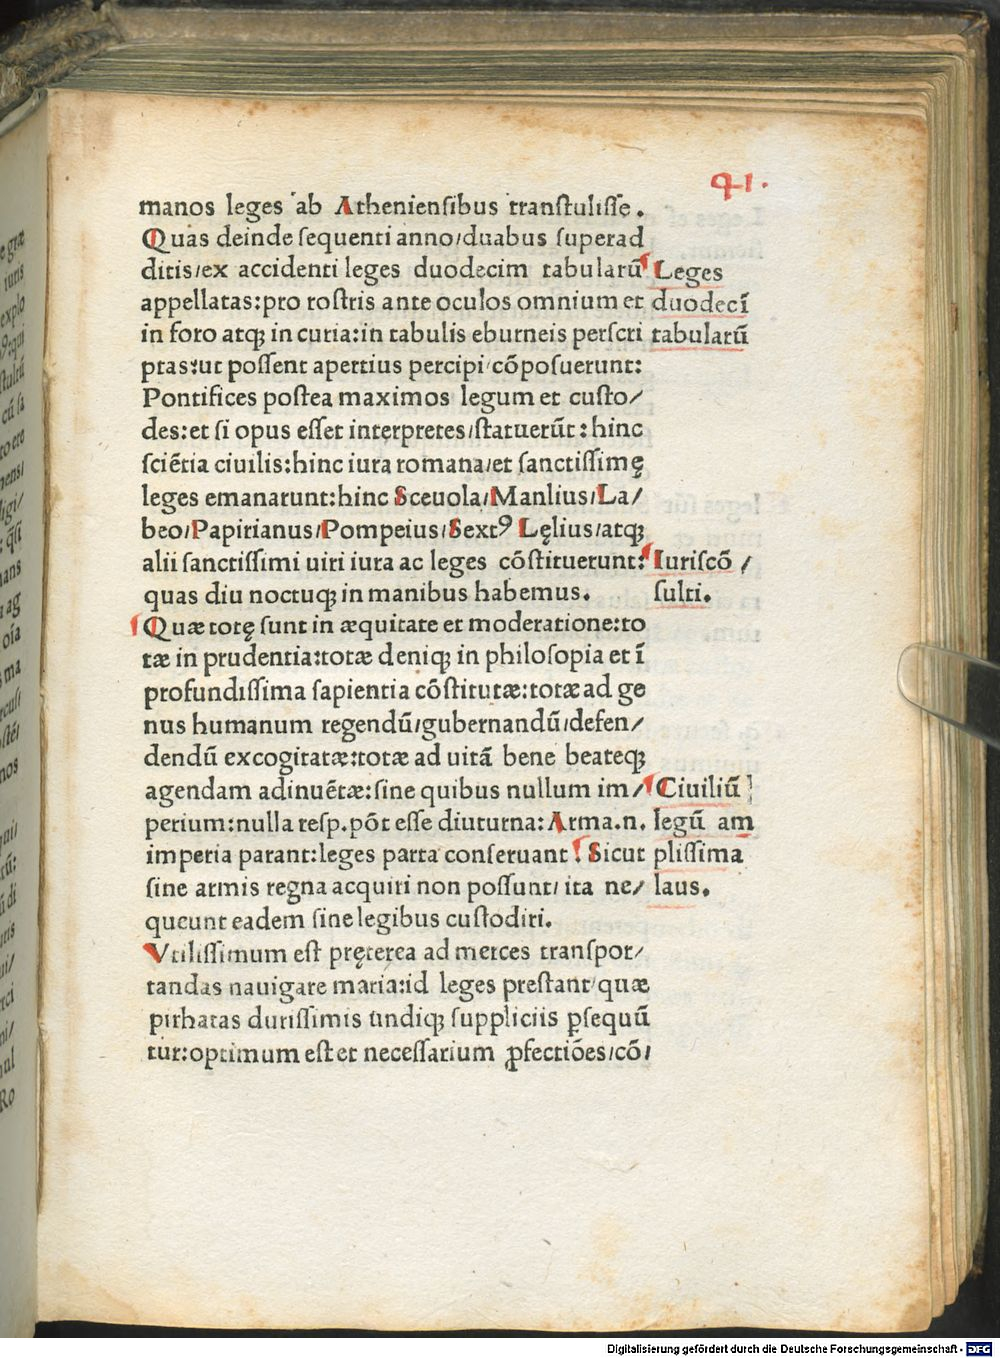 41.
manos leges ab Atheniensibus transtulisse.
Quas deinde sequenti anno/duabus superad
ditis/ex accidenti leges duodecim tabularū
appellatas:pro rostris ante oculos omnium et
in foro atqꝫ in curia:in tabulis eburneis perscri
ptas:ut possent apertius percipi/cōposuerunt:
Pontifices postea maximos legum et custo/
des:et si opus esset interpretes/statuerūt:hinc
sciētia ciuilis:hinc iura romana/et sanctissimę
leges emanarunt:hinc Sceuola/Manlius/La/
beo/Papirianus/Pompeius/Sextꝰ Lęlius/atqꝫ
alii sanctissimi uiri iura ac leges cōstituerunt:
quas diu noctuqꝫ in manibus habemus.
Quæ totę sunt in æquitate et moderatione:to
tæ in prudentia:totæ deniqꝫ in philosopia et ī
profundissima sapientia cōstitutæ:totæ ad ge
nus humanum regendū/gubernandū/defen/
dendū excogitatæ:totæ ad uitā bene beateqꝫ
agendam adinuētæ:sine quibus nullum im/
perium:nulla resp.pōt esse diuturna:Arma.n.
imperia parant:leges parta conseruant: Sicut
sine armis regna acquiri non possunt/ita ne/
queunt eadem sine legibus custodiri.
Vtilissimum est pręterea ad merces transpor/
tandas nauigare maria:id leges prestant/quæ
pirhatas durissimis undiqꝫ suppliciis ꝑsequū
tur:optimum est et necessarium ꝓfectiōes/cō/
Leges
duodecī
tabularū
Iuriscō/
sulti.
Ciuiliū
legū am
plissima
laus.
Digitalisierung gefördert durch die Deutsche Forschungsgemeinschaft - DFG